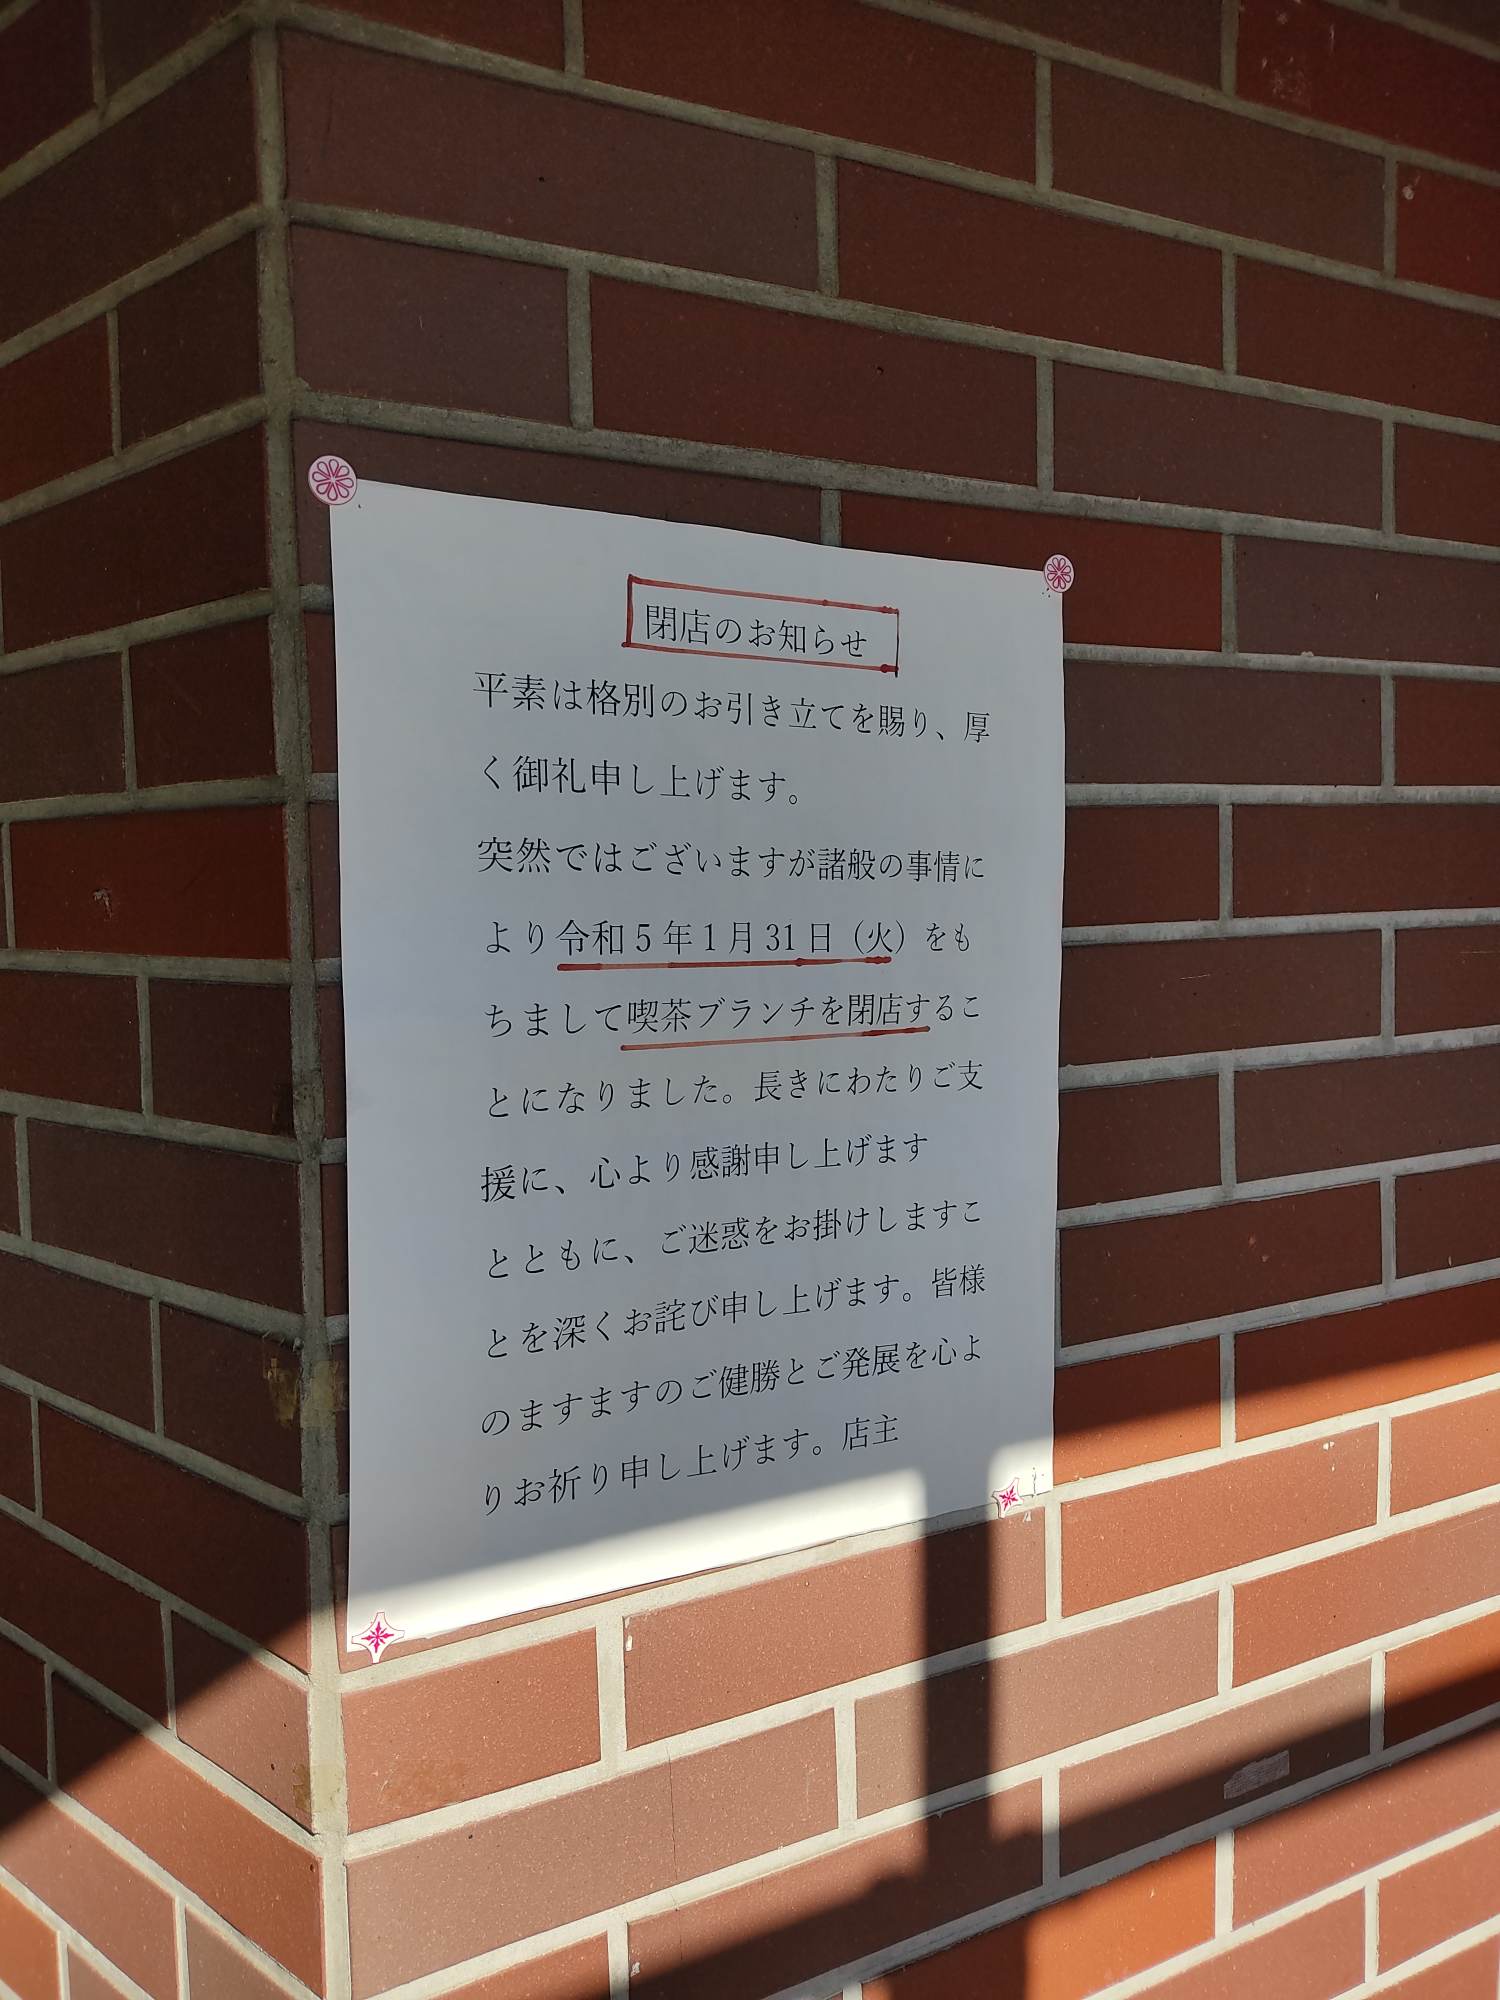 閉店のお知らせ
平素は格別のお引き立てを賜り、厚
く御礼申し上げます。
突然ではございますが諸般の事情に
より令和5年1月31日（火）をも
ちまして喫茶ブランチを閉店するこ
とになりました。長きにわたりご支
援に、心より感謝申し上げます
とともに、ご迷惑をお掛けしますこ
とを深くお詫び申し上げます。皆様
のますますのご健勝とご発展を心よ
りお祈り申し上げます。店主